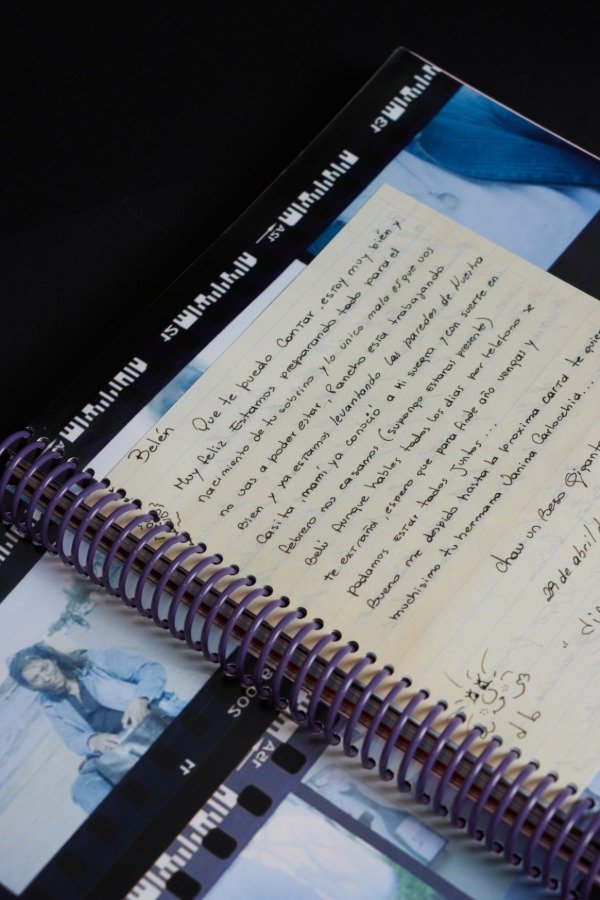 Belén
Que te puedo contar, estoy muy bien y
muy feliz. Estamos preparando todo para el
nacimiento de tu sobrino y lo unico malo es que vos
no vas a poder estar, Pancho esta trabajando
Bien y ya estamos levantando las paredes de Nuestra
Casita, mami ya conoció a mi suegra y con suerte en
febrero nos casamos (supongo estaras presente)
Beli Aunque hables todos los dias por telefono se
te extraña, espero que para finde año vengas y
podamos estar todos juntos...
Bueno me despido hasta la proxima carta te quie
muchisimo tu hermana Janina Carlocchia...
chau un Beso Gigant
29 de abril/
13
12A
12
2002
11